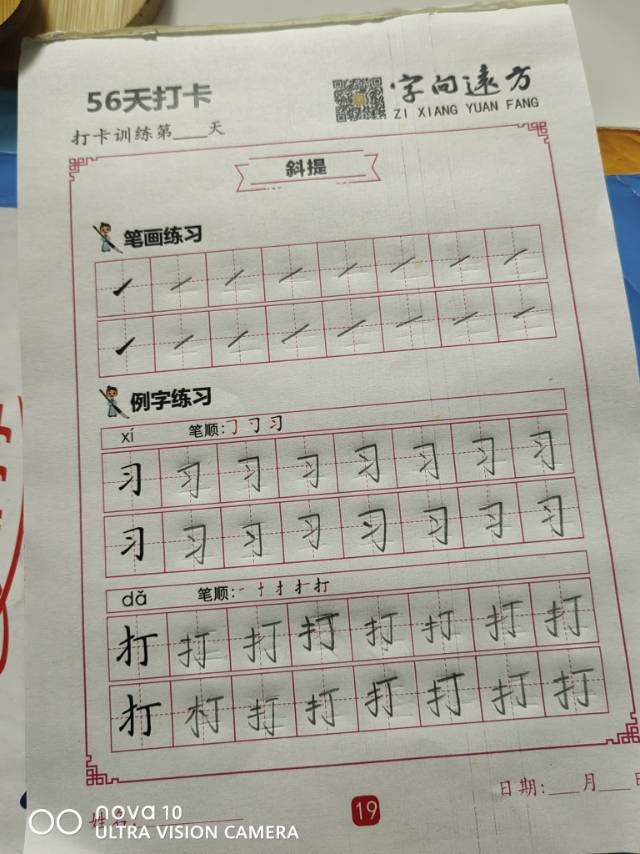 56天打卡
字向远方
ZI XIANG YUAN FANG
打卡训练第___天
斜提
笔画练习
例字练习
xí 笔顺:㇆ 刁 习
习 习 习 习 习 习 习 习
习 习 习 习 习 习 习 习
dǎ 笔顺:一 十 扌 扌 打
打 打 打 打 打 打 打 打
打 村 打 打 打 打 打 打
日期:___月___日
姓名:
19
nova 10
ULTRA VISION CAMERA